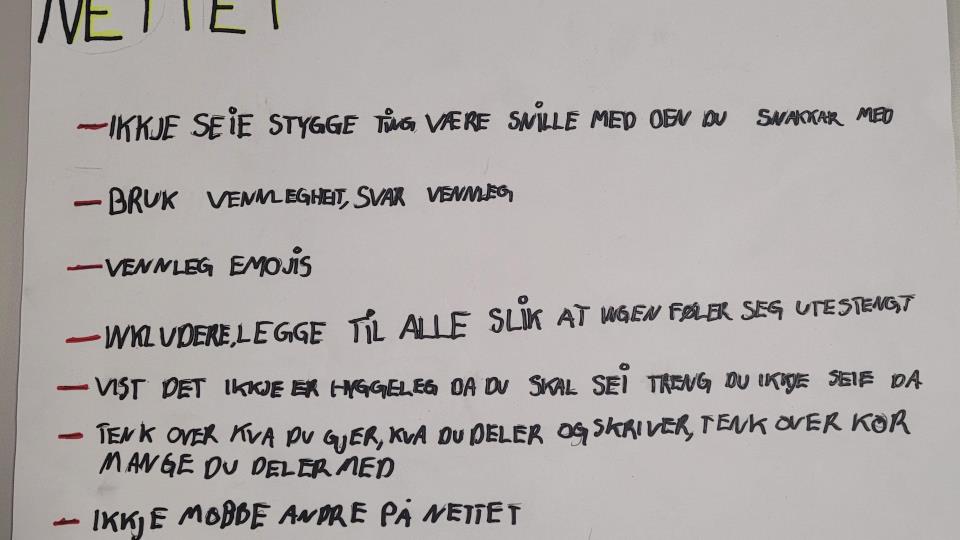 NETTET
- IKKJE SEIE STYGGE TING, VÆRE SNILLE MED DEN DU SNAKKAR MED
- BRUK VENNLEGHEIT, SVAR VENNLEG
- VENNLEG EMOJIS
- INKLUDERE, LEGGE TIL ALLE SLIK AT INGEN FØLER SEG UTESTENGT
- VIST DET IKKJE ER HYGGELEG DA DU SKAL SEI TRENG DU IKKJE SEIE DA
- TENK OVER KVA DU GJER, KVA DU DELER OG SKRIVER, TENK OVER KOR
MANGE DU DELER MED
- IKKJE MOBBE ANDRE PÅ NETTET